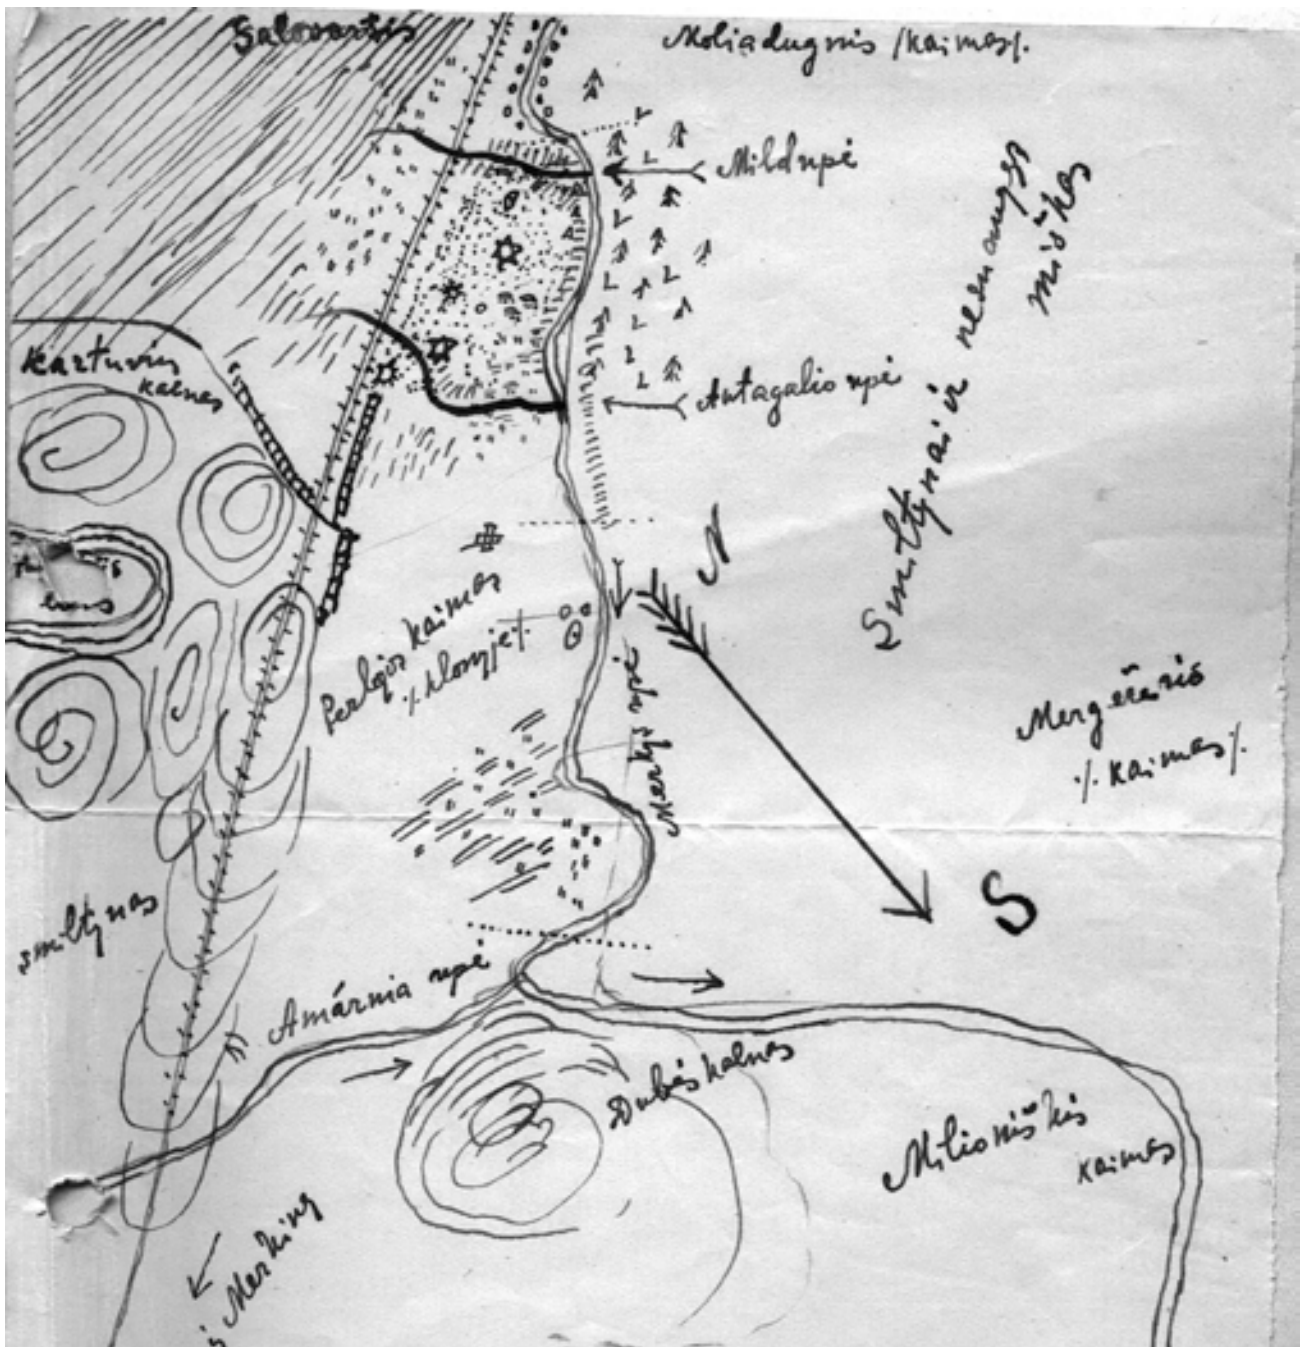 Salovartės
Moliadugnis /kaimas/.
Mildupė
Smiltynai ir nenaugęs
miškas
Kartuvių
kalnas
Antagalio upė
N
Perlojos kaimas
·/. klonyje/·
Merkys upė
Mergėžeris
·/. kaimas/.
S
smiltynas
Amarnia upė
Dubės kalnas
Milioniškis
kaimas
į Merkinę